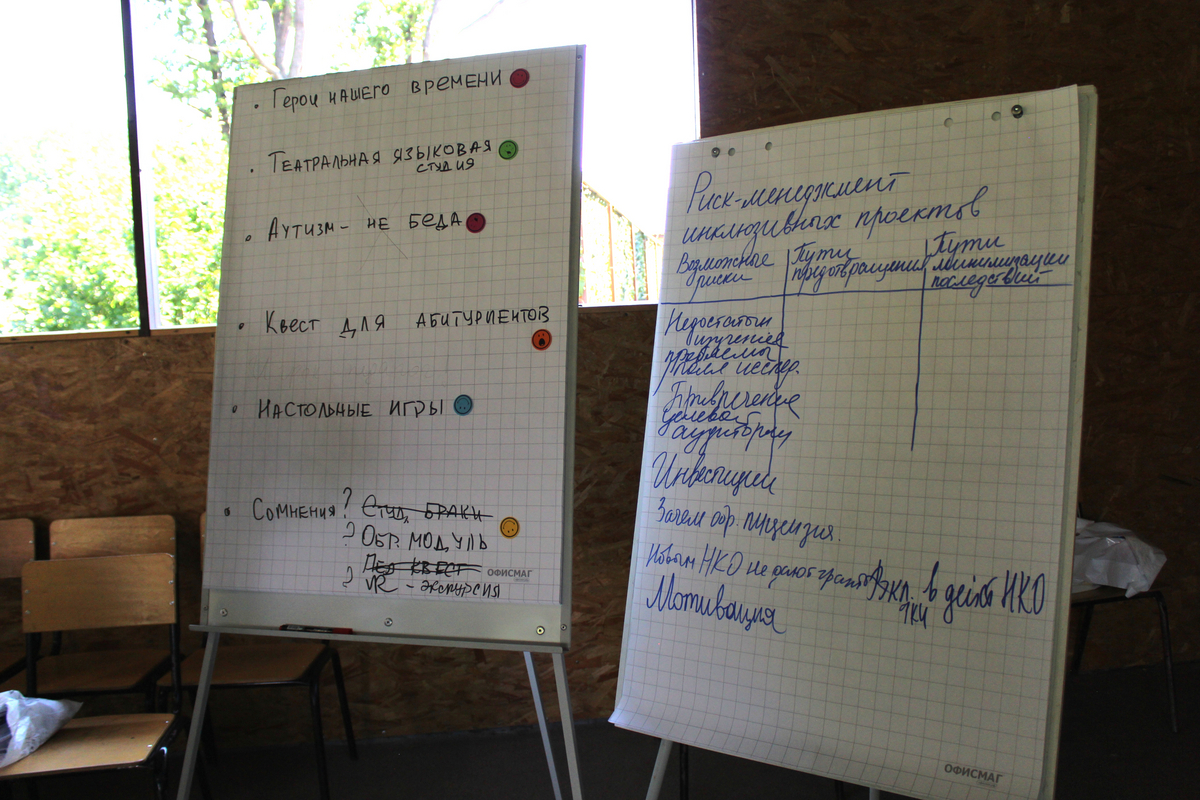 • Герои нашего времени
• Театральная языковая
студия
• Аутизм - не беда
• Квест для абитуриентов
• Настольные игры
• Сомнения ? Студ. браки
? Обр. модуль
Квест
? VR - экскурсия
ОФИСМАГ
Риск-менеджмент
инклюзивных проектов
Возможные
риски
Пути
предотвращения
Пути
минимизации
последствий
Недостатки
изучения
проблемы
поля исслед.
Привлечение
целевой
аудитории
Инвестиции
Зачем обр.
Новым НКО не дают гранты
Вкл. в деят НКО
Мотивация
ОФИСМАГ